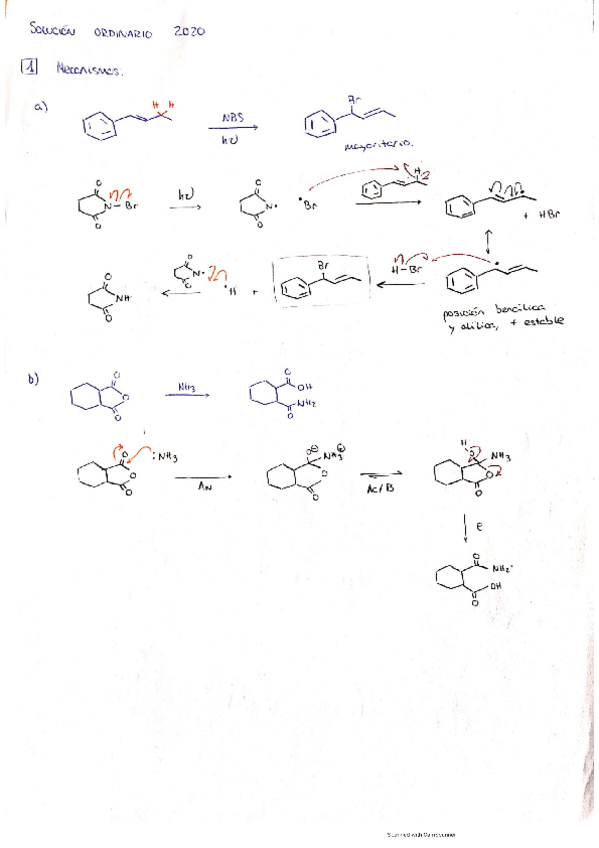 SOLUCIÓN ORDINARIO 2020
1 Mecanismos.
a)
H H
NBS
hν
Br
mayoritario.
O
N-Br
O
hν
O
N•
O
•Br
H
+ HBr
O
NH
O
O
N•
O
•H
+
Br
H-Br
posición bencílica
y alílica, + estable
b)
O
O
O
NH3
O
OH
NH2
O
O
O
O
:NH3
AN
O⊖
NH3⊕
O
O
Ac/B
H
O
NH3
O
O
E
O
NH2
OH
O
Scanned with CamScanner